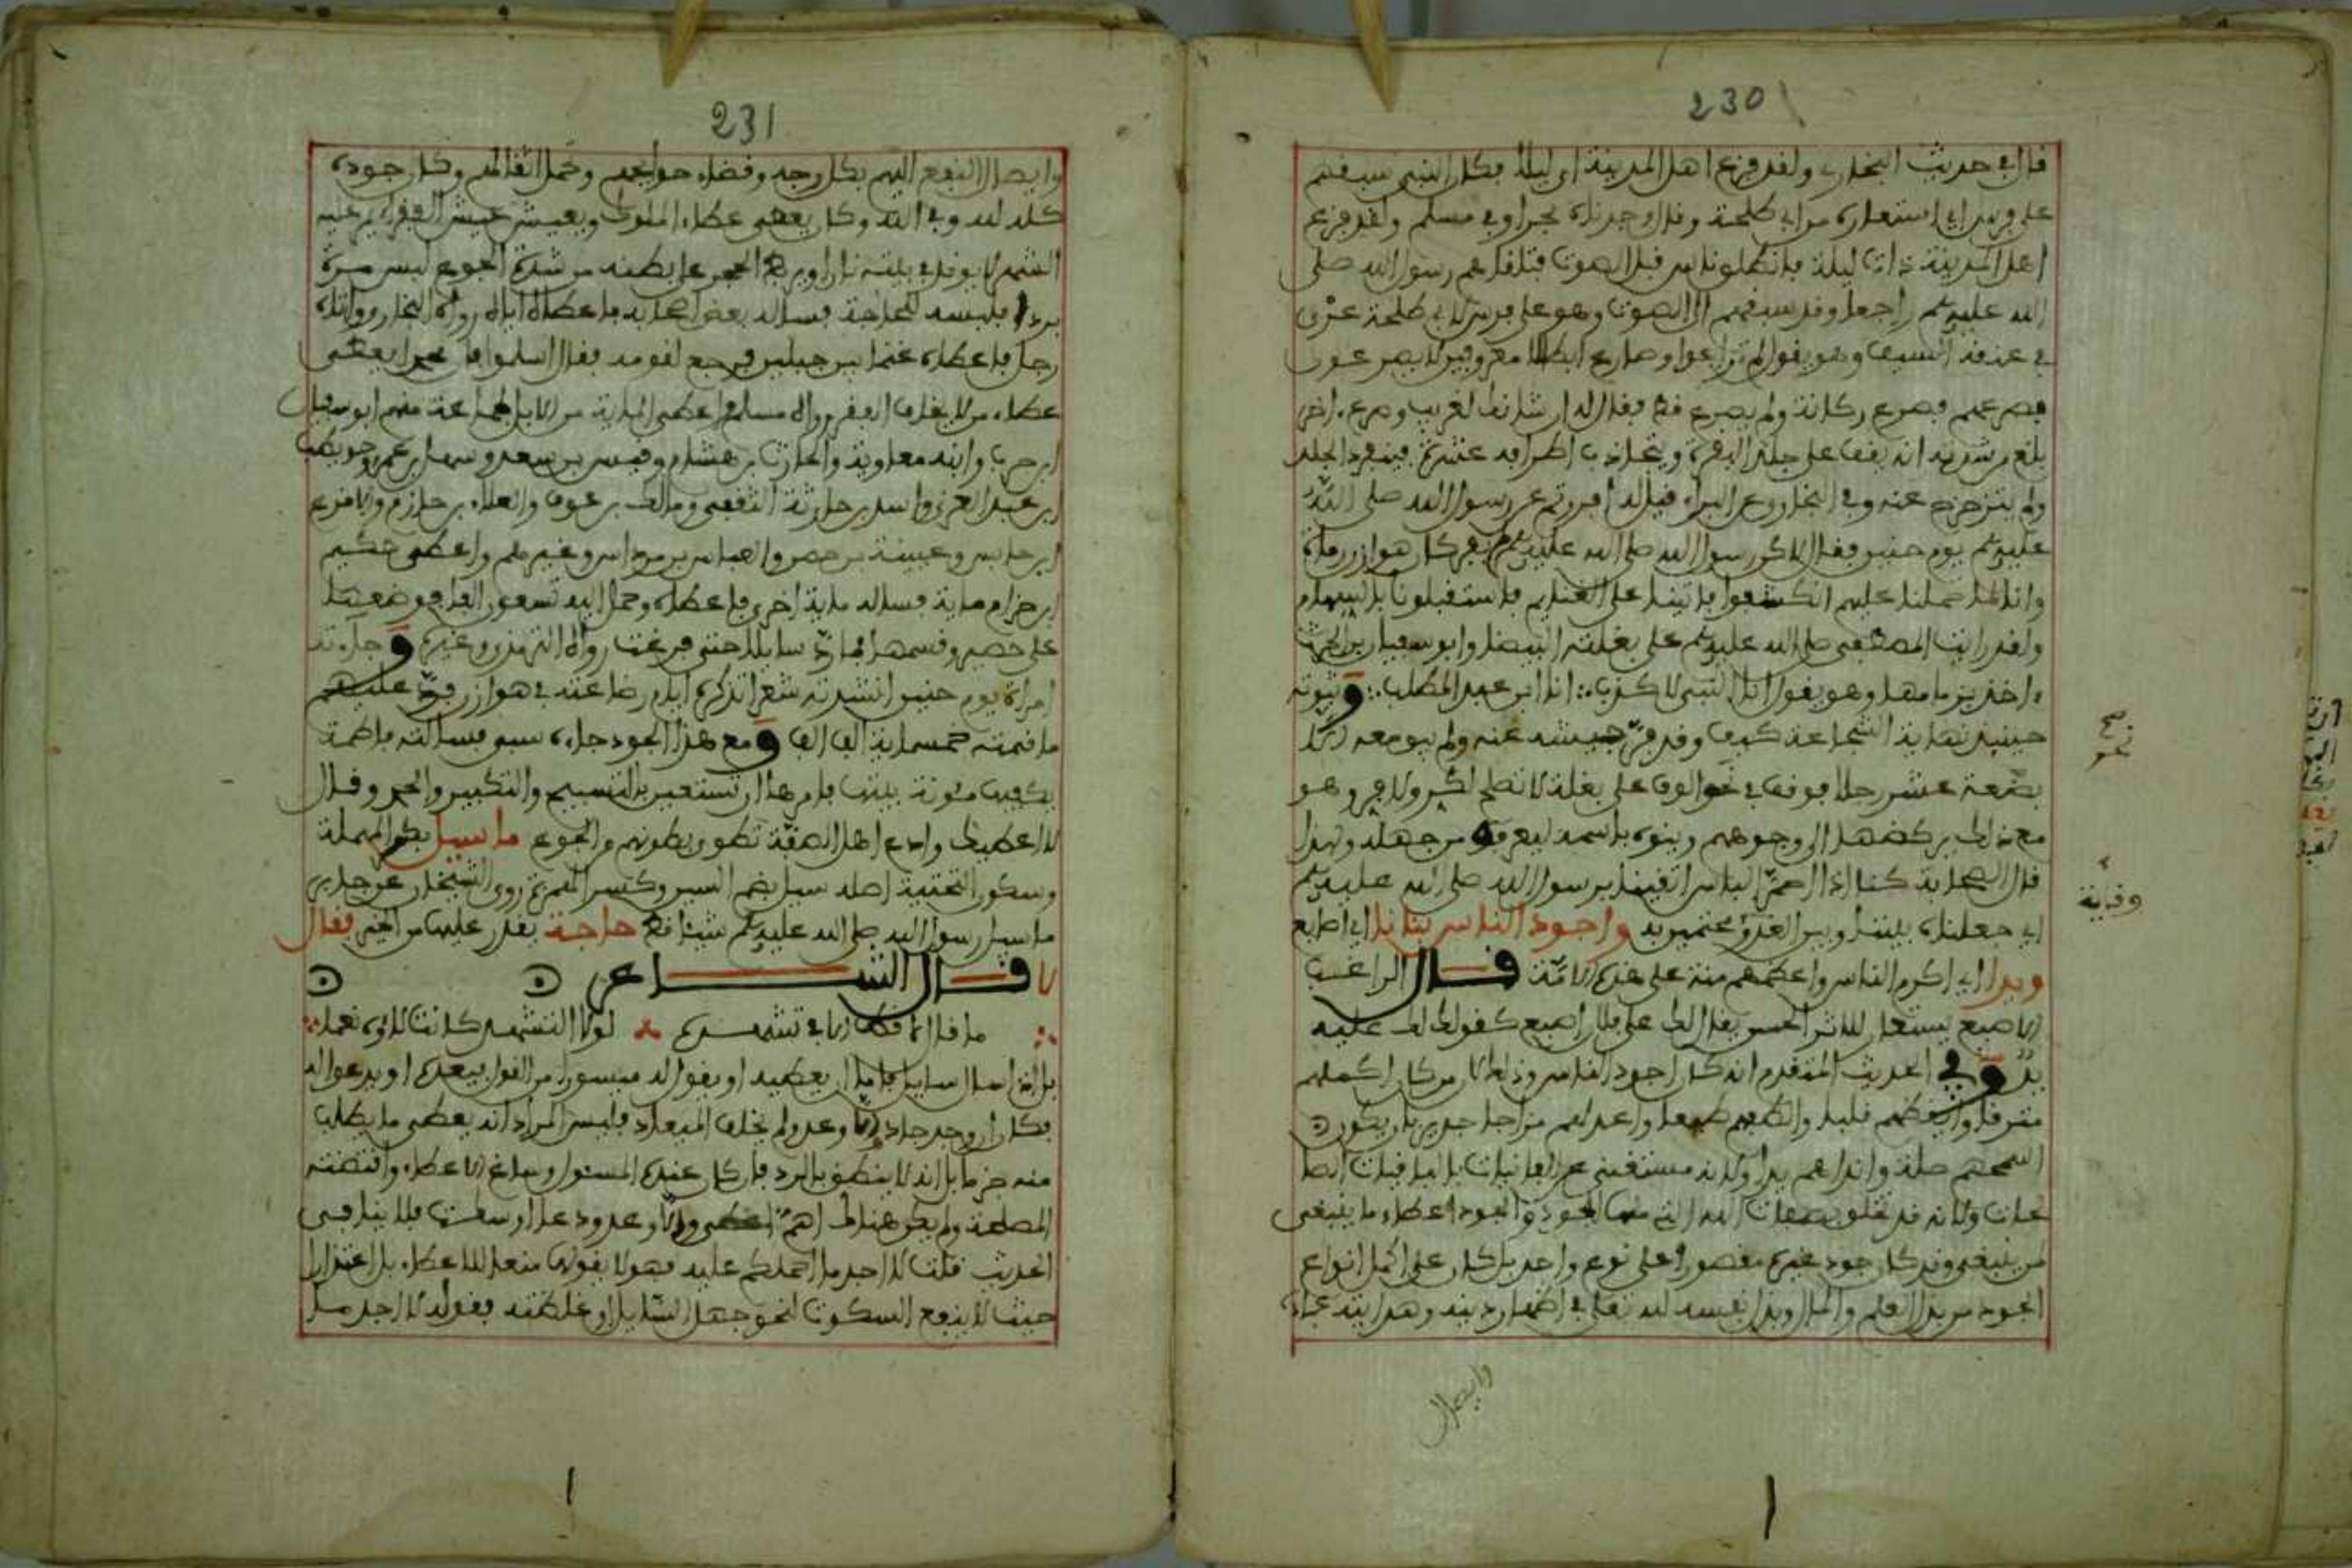 230
قال في حديث البخاري ولقد فزع اهل المدينة اي ليلا فكان النبي سبقهم
على فرس اي استعاره من ابي طلحة وقال وجدناه بحرا وفي مسلم ولقد فزع
اهل المدينة ذات ليلة فانطلق ناس قبل الصوت فتلقاهم رسول الله صلى
الله عليه وسلم راجعا وقد سبقهم الى الصوت وهو على فرس لابي طلحة عري
في عنقه السيف وهو يقول لم تراعوا وصارع ابطالا معروفين لا يصرعون
فصرعهم فصرع ركانة ولم يصرع قط فقال له ان شانك لغريب وصرع اخر
بلغ من شدته انه يقف على جلد البقرة ويتجاذب اطرافه عشرة فيتفرد الجلد
ولم يتزحزح عنه وفي البخاري عن البراء قيل له افررتم عن رسول الله صلى الله
عليه وسلم يوم حنين فقال لاكن رسول الله صلى الله عليه وسلم لم يفر كان هوازن رماة
وانا لما حملنا عليهم انكشفوا فاتينا على الغنايم فاستقبلونا بالسهام
ولقد رايت المصطفى صلى الله عليه وسلم على بغلته البيضا وابو سفيان بن الحرث
ءاخذ بزمامها وهو يقول انا النبي لا كذب ∴ انا ابن عبد المطلب ∴ وثبوته
حينيذ نهاية الشجاعة كيف وقد فر جيشه عنه ولم يبق معه الا
بضعة عشر رجلا فوقف في نحو الوف على بغلة لا تصلح لكر ولا فر وهو
مع ذلك يركضها الى وجوههم وينوه باسمه ليعرفه من جهله ولهذا
قال الصحابة كنا اذا احمر الباس اتقينا برسول الله صلى الله عليه وسلم
اي جعلناه بيننا وبين العدو محتمين به واجود الناس بنانا اي اصابع
ويدا اي اكرم الناس واعظمهم منة على هذه الامة قال الراغب
الاصبع يستعار للاثر الحسن يقال لك على فلان اصبع كقولك لك عليه
يد وفي الحديث المتقدم انه كان اجود الناس وذلك لان من كان اكملهم
شرفا وايقظهم قلبا والطفهم طبعا واعدلهم مزاجا جدير بان يكون
اسمحهم صلة وانداهم يدا ولانه مستغني عن الفانيات بالباقيات الصا
لحات ولانه قد تخلق بصفات الله التي منها الجود والجود اعطاء ما ينبغي
لمن ينبغي وقد كان جود غيره مقصورا على نوع واحد بل كان على اكمل انواع
الجود من بذل العلم والمال وبذل نفسه لله تعالى في اظهار دينه وهداية عباده
وايصال
صح
نحو
وقاية
231
وايصال النفع اليهم بكل وجه وقضاء حوايجهم وتحمل اثقالهم وكان جوده
كله لله وفي الله وكان يعطي عطاء الملوك ويعيش عيش الفقراء يمر عليه
الشهر لا يوقد في بيته نارا ويربط الحجر على بطنه من شدة الجوع لبس مرة
بردا فلبسه لحاجة فساله بعض اصحابه فاعطاه اياه رواه البخاري واتاه
رجل فاعطاه غنما بين جبلين فرجع لقومه فقال اسلموا فان محمدا يعطي
عطاء من لا يخاف الفقر رواه مسلم واعطى الماية من الابل لجماعة منهم ابو سفيان
ابن حرب وابنه معاوية والحارث بن هشام وقيس بن سعد وسهل بن عمرو وحويطب
ابن عبد العزى واسد بن حارثة الثقفي ومالك بن عوف والعلاء بن حارثة والاقرع
ابن حابس وعيينة بن حصن والعباس بن مرداس وغيرهم واعطى حكيم
ابن حزام ماية فساله ماية اخرى فاعطاه وحمل اليه تسعون الفا فوضعها
على حصير وقسمها فما رد سايلا حتى فرغت رواه الترمذي وغيره وجاءته
امراة يوم حنين انشدته شعرا تذكره ايام رضاعته في هوازن فرد عليهم
ما قيمته خمسماية الف الف ومع هذا الجود جاءه سبي فسالته فاطمة
يكفيها مئونة بيتها فامرها ان تستعين بالتسبيح والتكبير والحمد وقال
لا اعطيك وادع اهل الصفة تطوى بطونهم من الجوع ما سيل بكسر المهملة
وسكون التحتية اصله سيل بضم السين وكسر الهمزة روى الشيخان عن جابر
ما سيل رسول الله صلى الله عليه وسلم شيئا قط حاجة يقدر عليها من الخير فقال
لا قال الشاعر
∴ ما قال لا قط الا في تشهده ∴ لولا التشهد كانت لاؤه نعم ∴
بل اذا سال سايل فاما ان يعطيه او يقول له ميسورا من القول فيعده او يدعو له
فكان ان وجد جاد والا وعد ولم يخلف الميعاد فليس المراد انه يعطي ما يطلب
منه جزما بل انه لا ينطق بالرد فان كان عنده المسئول وساغ الاعطاء واقتضته
المصلحة ولم يكن هناك اهم اعطى والا وعد ودعا او سكت فلا ينافي
الحديث قلت لا اجد ما احملكم عليه فهو لا يقول لا منعا للاعطاء بل اعتذارا
حيث لا ينفع السكوت لنحو جهل السايل او غلظته فقوله لا اجد ما